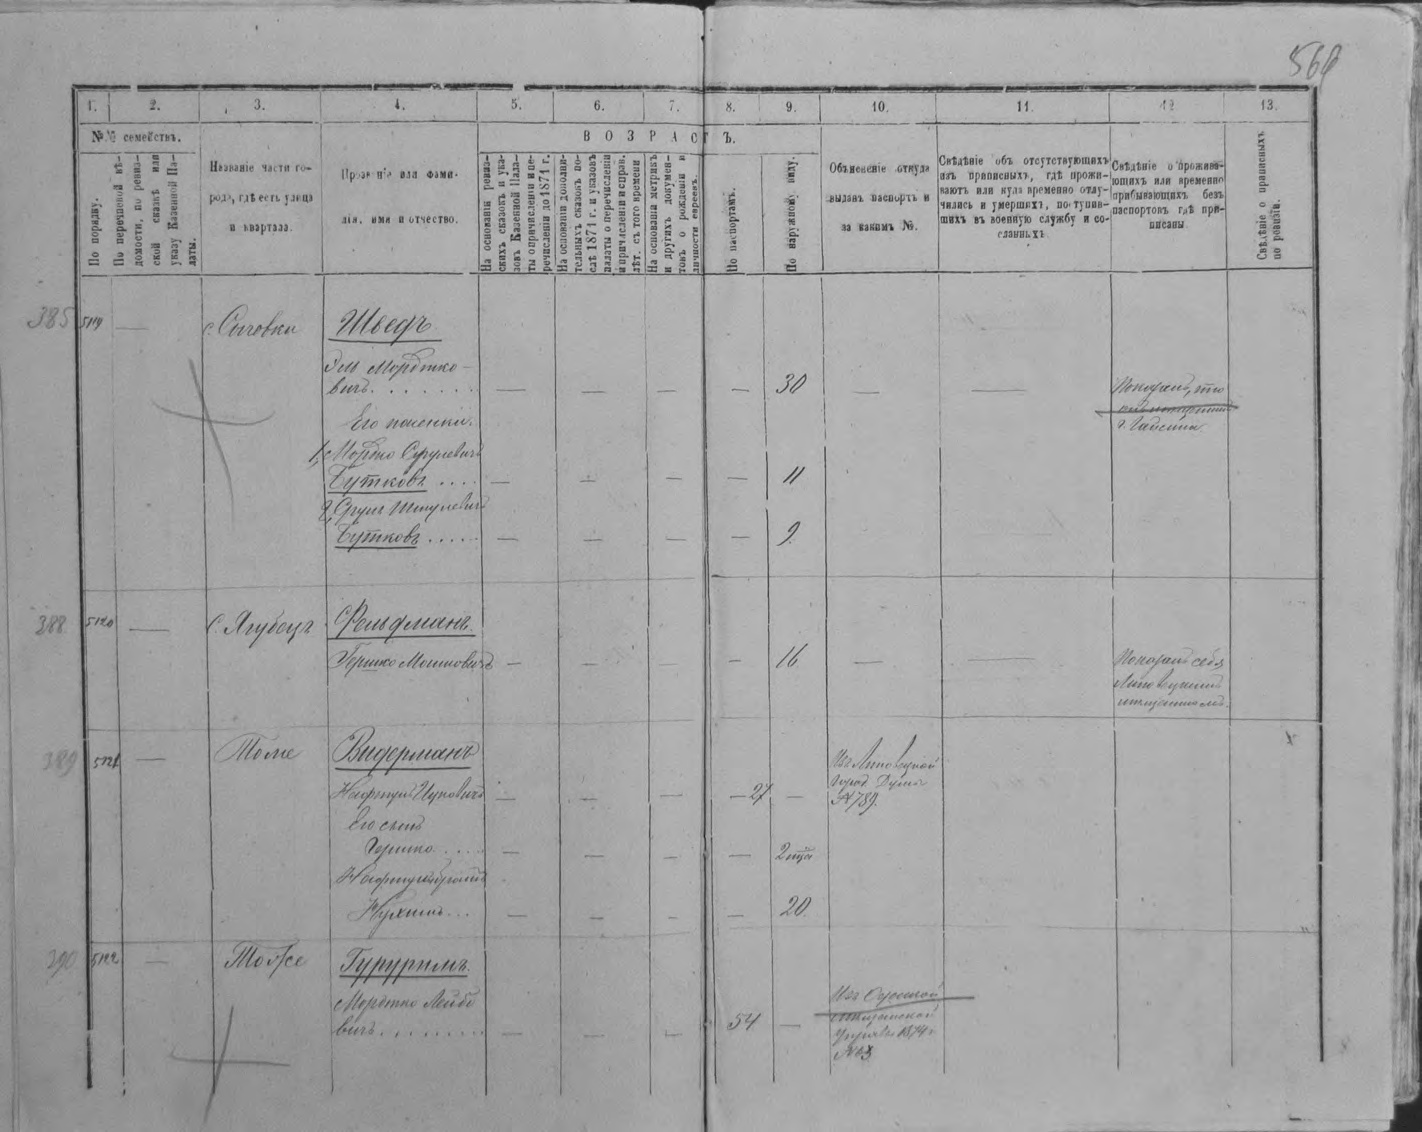 568
1.
2.
3.
4.
5.
6.
7.
8.
9.
10.
11.
12
13.
№№ семействъ.
По порядку.
По перечневой вѣ-
домости, по ревиз-
ской сказкѣ или
указу Казенной Па-
латы.
Названіе части го-
рода, гдѣ есть улица
и квартала.
Прозваніе или фами-
лія, имя и отчество.
ВОЗРАСТЪ.
На основаніи ревиз-
скихъ сказокъ и ука-
зовъ Казенной Пала-
ты о причисленіи и пе-
речисленіи до 1871 г.
На основаніи дополни-
тельныхъ сказокъ по-
слѣ 1871 г. и указовъ
палаты о перечисленіи
и причисленіи и справ.
лѣт. съ того времени
На основаніи метрикъ
и другихъ докумен-
товъ о рожденіи и
личности евреевъ.
По паспортамъ.
По наружному виду.
Объясненіе откуда
выданъ паспортъ и
за какимъ №.
Свѣдѣніе объ отсутствующихъ
изъ приписныхъ, гдѣ прожи-
ваютъ или куда временно отлу-
чились и умершихъ, поступив-
шихъ въ военную службу и со-
сланныхъ
Свѣдѣніе о прожива-
ющихъ или временно
прибывающихъ безъ
паспортовъ гдѣ при-
писаны
Свѣдѣніе о приписныхъ
по ревизіи.
385 5119 — с. Сычевки Шведъ
Эль Мордтко-
вичъ — — — — 30 — — Показалъ, что
г. Гадечина
Его пасенки.
1, Мордко Срулевичъ
Бутковъ — — — — 11
2, Сруль Шмулевичъ
Бутковъ — — — — 9.
388 5120 — с. Ягубецъ Фельдманъ.
Гершко Мошковичъ — — — — 16 — — Показалъ себя
Липовецкимъ
389 5121 — Тоже Видерманъ
Нафтула Ицковичъ — — — — 27 — Изъ Липовецкой
Город. Думы
№ 789.
Его сынъ
Гершко — — — — 2
Нафтулы братъ
Нухимъ — — — — 20
390 5122 — Тоже Гуруримъ.
Мордтко Лейбо
вичъ — — — 54 —
Управы 1874 г
№ 3